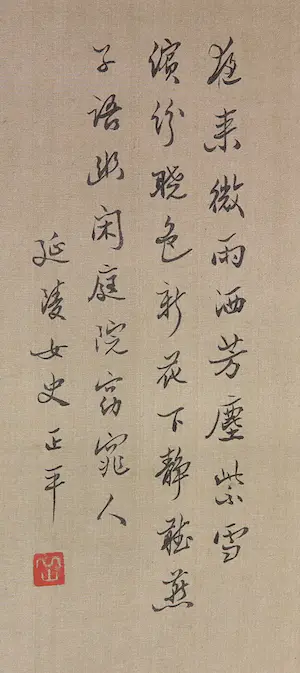 夜来微雨洒芳塵紫雪
缤纷晓色新花下静聽燕
子語幽闲庭院窈窕人
延陵女史正平